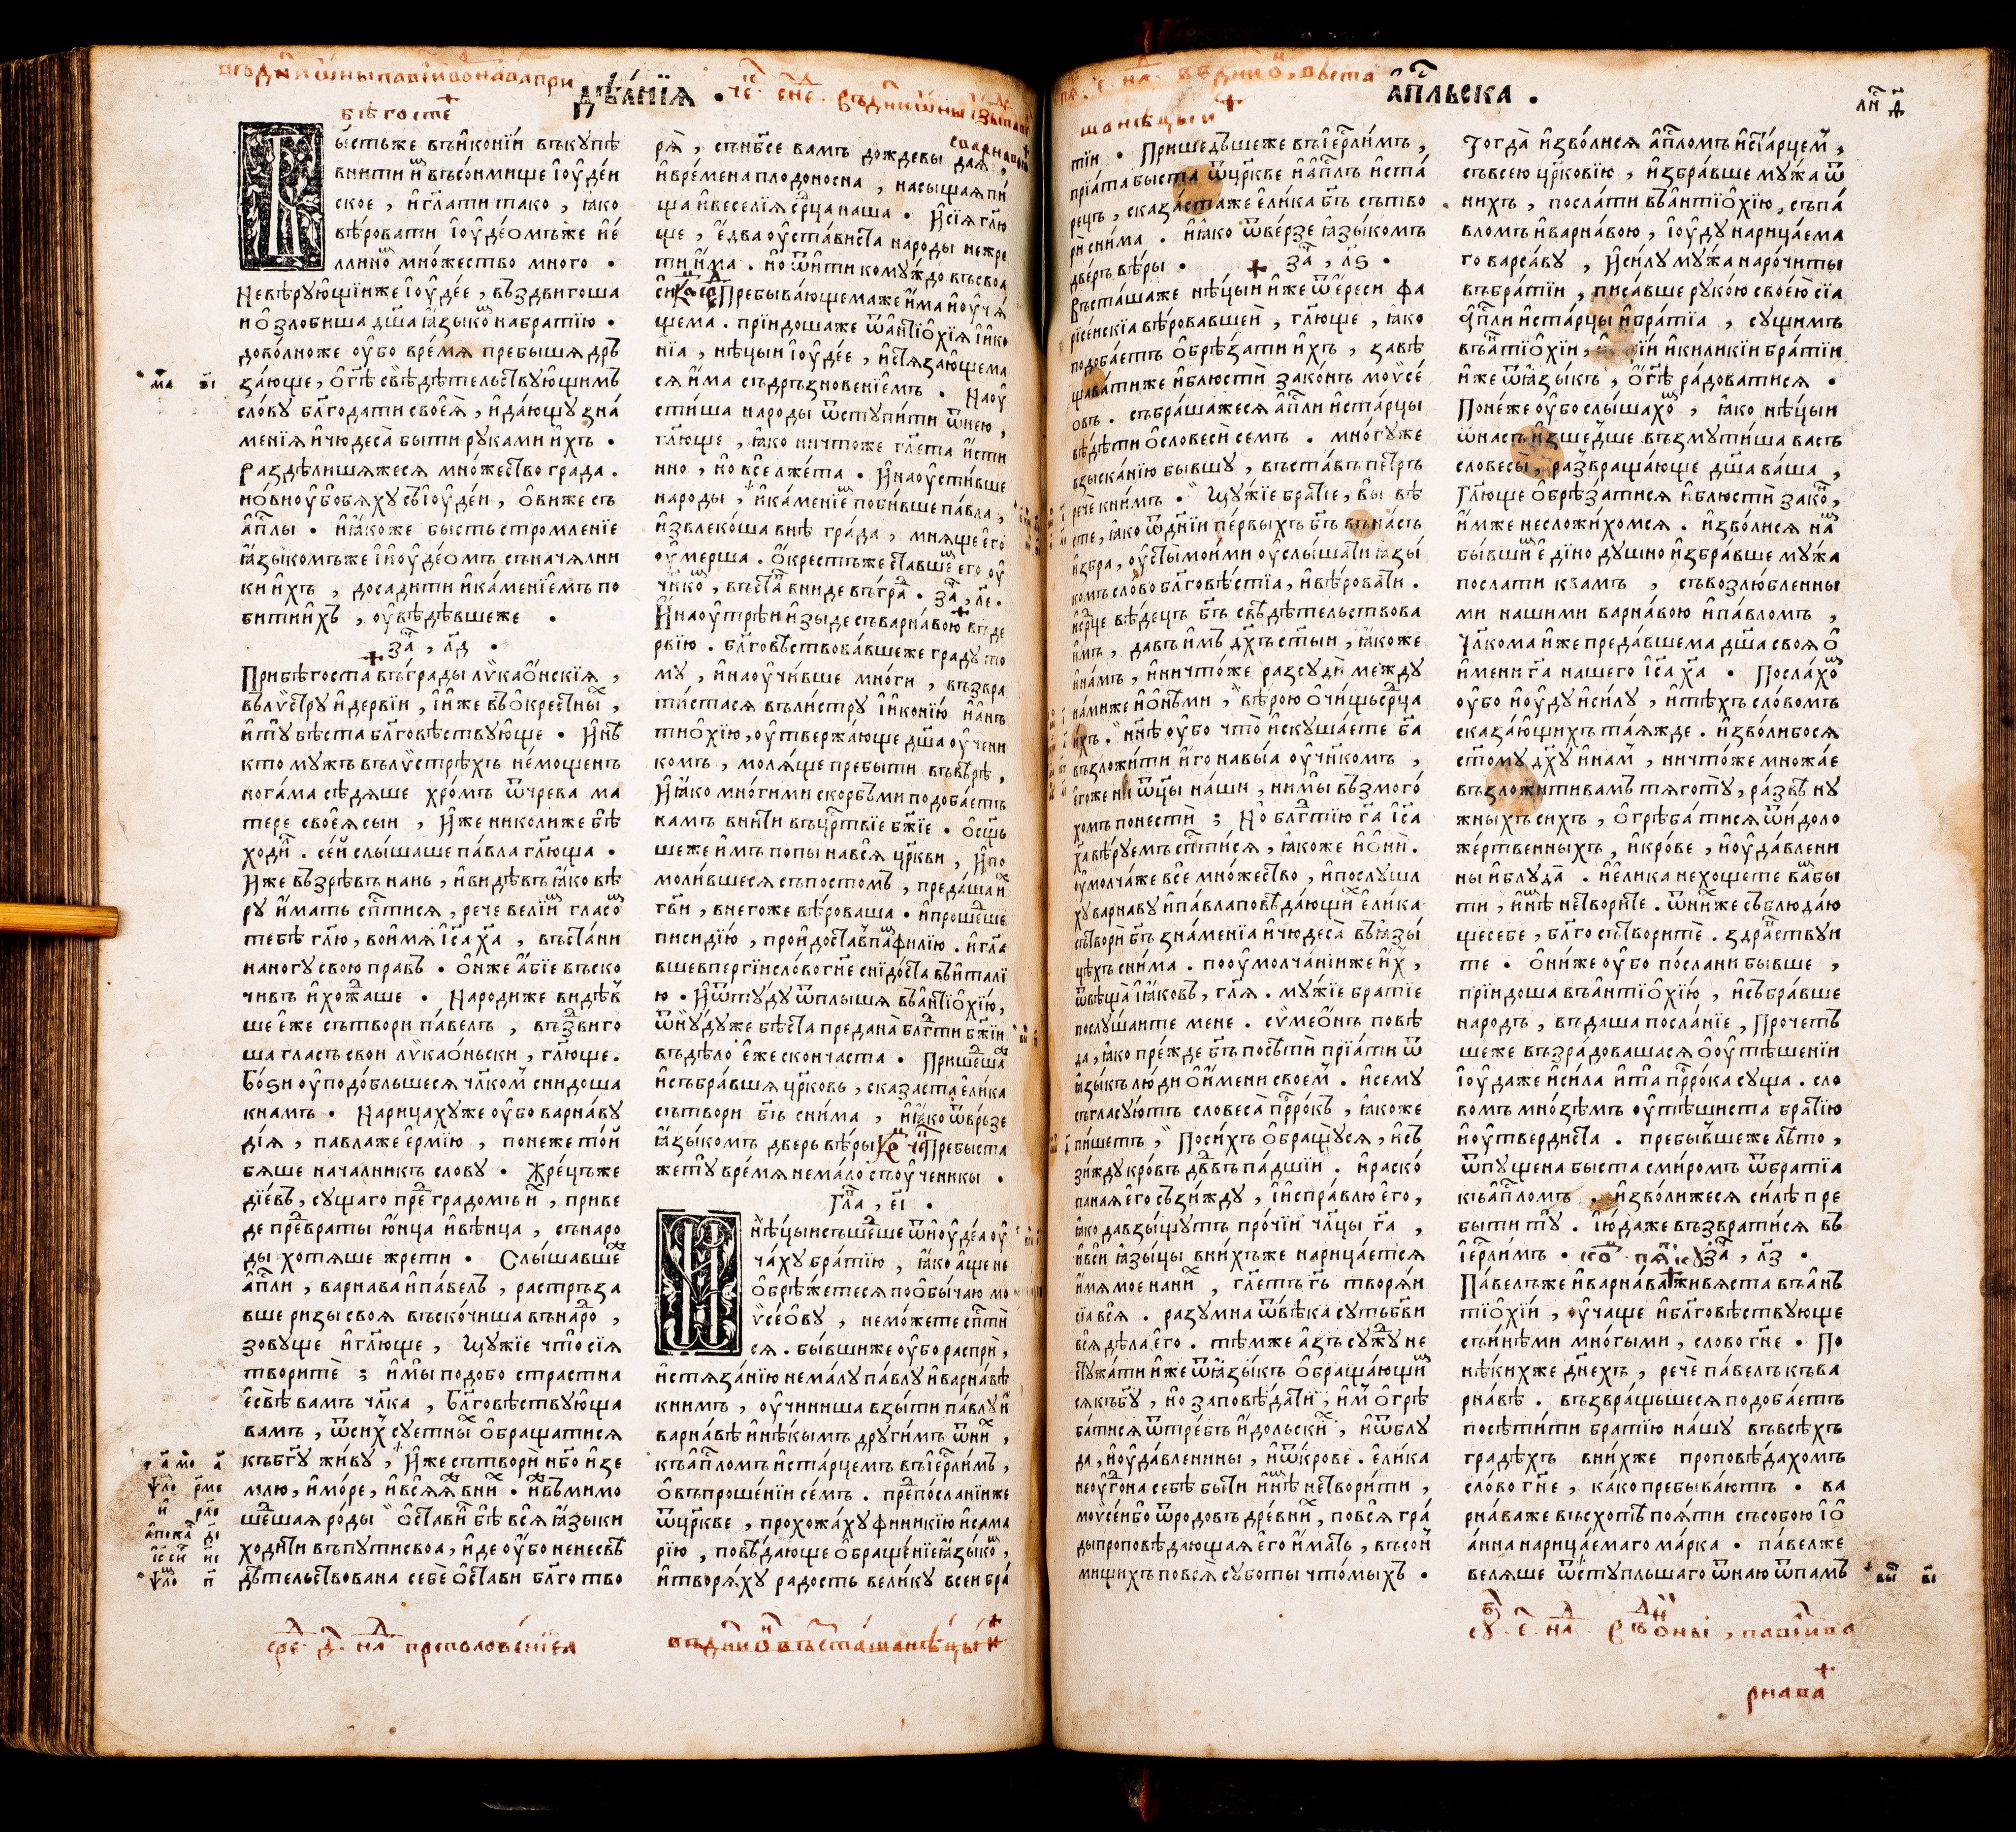 дѣѧ́нїѧ .
бѣгосте
ы́стьже въи҆конїи въкупѣ
внити и҆ въсонмище і҆оуде́й
ское , и҆гл҃ати тако , ꙗ҆ко
вѣ́ровати і҆оудеомъже и҆е́
ллино мно́жество много .
Невѣ́рующїиже і҆оуде́е , въздвигоша
и о҆злобиша дш҃а ꙗ҆зыко набратїю .
дово́лноже оу҆бо вре́мѧ пребышѧ дръ
за́юще , о҆гдѣ свѣдѣтельствующимъ
сло́ву блг҃одати своеѧ̀ , и҆даю́щу зна́
менїѧ и҆чюдеса̀ быти руками и҆хъ .
Раздѣлишѧжесѧ мно́жество града .
и҆о́виоу҆бобѧху съі҆оуде́и , о҆виже съ
а҆пⷭ҇лы . и҆ꙗ҆коже бысть стромленїе
ꙗ҆зыкомъже і҆и҆оуде́омъ съначѧлни
ки и҆хъ , досадити и҆ка́менїемъ по
битии҆хъ , оу҆вѣдѣ́вшеже .
за҄ , л҃д .
Прибѣгоста въгра́ды лѵкао҆нскїѧ ,
въ лѵ́стру и҆дервїи , і҆и҆же въо҆крестны ,
и҆ту бѣ́ста блг҃овѣствую́ще . И҆нѣ
кто мужъ вълѵстрѣхъ не́мощенъ
ногама сѣдѧше хро́мъ ѿчрева ма
тере своеѧ̀ сыи , и҆же николиже бѣ̀
ходи . се́й слы́шаше па́вла гл҃юща .
И҆же възрѣ́въ нань , и҆видѣ́въ ꙗ҆ко вѣ
ру и҆́мать сп҃тисѧ , рече велїи гласо
тебѣ̀ гл҃ю , воимѧ і҆с҃а х҃а , въста́ни
наногу свою правъ . о҆нже а҆́бїе въско
чивъ и҆хожаше . Народиже видѣ́в
ше е҆́же сътвори па́велъ , въздвиго
ша гласъ свои лѵкао҆ньски , гл҃юще .
Бо́ѕи оу҆подо́бльшесѧ чл҃ком снидоша
кнамъ . Нарица́хуже оу҆бо варна́ву
дїѧ , павлаже е҆рмїю , понеже то́й
бѧше началникъ слову . Жре́цъже
дїевъ , су́щаго пре градомъ и҆ , приве
де преⷣвраты ю҆нца и҆вѣнца , съ наро
ды хотѧше жрети . Слы́шавше
а҆пⷭ҇ли , варнава и҆па́велъ , растръза
вше ризы своѧ въскочиша внаро ,
зовуще и҆гл҃юще , Мужїе что сїѧ
творитѐ ; и҆мы̀ подо́бо стра́стна
е҆свѣ̀ вамъ чл҃ка , бл҃говѣствую́ща
вамъ , ѿсих суе́тны о҆бращатисѧ
къ бг҃у живу , И҆́же сътворѝ нб҃о и҆зе
млю , и҆мо́ре , и҆всѧꙗ҆ вни . и҆въ мимо
шешаѧ ро́ды о҆стави бѣ̀ всѧ ꙗ҆зы́ки
ходити въпутисвоа , и҆де оу҆бо ненесвѣ
дѣтельствована себѐ о҆стави блг҃о тво
сре҇ д҃ нⷣл преполовенїеа
рѧ̀ , съ нбс҃е вамъ дождевы даѧ ,
и҆вре́мена плодоносна , насыщаѧ пи́
ща и҆веселїѧ срⷣца наша . И҆сїѧ гл҃ю
ще , е҆два оу҆стависта народы нежре
ти и҆́ма . но ѿити кому́ждо въ своѧ
си Пребываю́щемаже и҆ма и҆оу҆чѧ́
щема . прїидошаже ѿ а҆нтїо҆хїѧ і҆и҆ко
нїа , нѣцыи і҆оуде́е , и҆стѧза́ющема
сѧ и҆ма съ дръзновенїемъ . Наоу
сти́ша народы ѿступи́ти ѿнею ,
гл҃юще , ꙗ҆ко ничтоже гл҃ета и҆́сти
нно , но все лже́та . И҆наоу҆сти́вше
народы , и҆ка́менїе поби́вше па́вла ,
и҆звлекоша внѣ гра́да , мнѧще его̀
оу҆́мерша . О҆крестъже ставше его оу
чико , въста вниде въгра . за҄ , л҃е.
И҆наоу҆трѣи и҆зыде съ варна́вою въ де
рвїю . блг҃овѣствова́вшеже граду то
му , и҆наоу҆чи́вше мно́ги , възвра
ти́стасѧ вълистру і҆и҆конїю и҆а҆нъ
тио҆хїю , оу҆твержа́юще дш҃а оу҆чени
комъ , молѧще пребыти въвѣрѣ ,
И҆ꙗ҆ко мно́гими скорбьми подоба́етъ
намъ вни́ти въцрⷭ҇твїе бж҃їе . О҆сщь
шеже и҆мъ попы навсѧ црк҃ви , и҆по
моли́вшесѧ съ постомъ , предаша и
гв҃и , внегоже вѣроваша . и҆прошеше
писидїю , прои҆доста впаⷨфилїю . и҆гл҃а
вше вперги́и сло́во гн҃е снидо́ста въи҆талї
ю . И҆ѿту́ду ѿплышѧ въа҆нтїо҆хїю ,
ѿню́дуже бѣ́ста предана̀ блг҃ти бж҃їи
въ дѣ́ло е҆́же скончаста . Пришеша
и҆събра́вшѧ цр҃ковь , сказаста е҆лика
сътвори бг҃ъ снима , и҆ꙗ҆ко ѿвръзе
ꙗ҆зы́комъ дверь вѣры Пребыста
жету вре́мѧ нема́ло съ оу҆ченики .
гла҄ , е҃і .
Нѣ́цыи съшеше ѿи҆юде́а оу҆
ча́ху бра́тїю , ꙗ҆ко а҆ще не
о҆брѣ́жетесѧ по о҆бы́чаю мо
ѵсео҆ву , немо́жете сп҃ти
сѧ . бы́вшиже оу҆бо распрѝ ,
и҆стѧза́нїю нема́лу па́влу и҆варна́вѣ
книмъ , оу҆чиниша взы́ти па́влу и
варна́вѣ и҆нѣ́кымъ други́мъ ѿ ни ,
къ а҆пⷭ҇ломъ и҆ста́рцемъ въі҆ерл҃и́мъ ,
о҆ въпроше́нїи се́мъ . преⷣпо́сланїиже
ѿ цр҃кве , прохожа́ху финикїю и҆сама
рїю , повѣ́дающе о҆браще́нїе ꙗ҆зы́ко ,
и҆творѧ́ху радость вели́ку всеи бра́
въ дн҃и о҆́ въсташа нѣцы́и
а҆пⷭ҇льска .
шанѣцыи
тїи . Прише́дшеже въі҆ерл҃имъ ,
прїѧ́та быста ѿ цр҃кве и҆а҆пⷭ҇лъ и҆ста́
рецъ , сказа́стаже е҆ли́ка бг҃ъ сътво
рѝ сни́ма . и҆ꙗ҆ко ѿве́рзе ꙗ҆зы́комъ
две́рь вѣ́ры . за҄ , л҃ѕ .
Въста́шаже нѣ́цыи и҆́же ѿ е҆́реси фа
рїсе́искїѧ вѣ́ровавшеи , гл҃юще , ꙗ҆ко
подоба́етъ о҆брѣ́зати и҆хъ , завѣ
щава́тиже и҆блюстѝ зако́нъ моѵсе́
овъ . събра́шажесѧ а҆пⷭ҇ли и҆ста́рцы
вѣ́дѣти о҆словесѝ семъ . мно́гуже
взыска́нїю бы́вшу , въста́въ пе́тръ
речѐ кни́мъ . Му́жїе бра́тїе , вы̀ вѣ́
сте , ꙗ҆ко ѿ дн҃їи пе́рвыхъ бг҃ъ въна́съ
и҆збра̀ , оу҆сты̀ мои́ми оу҆слы́шати ꙗ҆зы́
комъ сло́во блг҃овѣ́стїа , и҆вѣ́ровати .
и҆срⷣцевѣ́децъ бг҃ъ свѣдѣ́тельствова
и҆мъ , да́въ и҆мъ дх҃ъ ст҃ыи , ꙗ҆коже
и҆на́мъ , и҆ничто́же разсудѝ между
на́миже и҆о҆нѣми , вѣ́рою о҆чи́щь срⷣца
и҆хъ . ны́нѣ оу҆бо что̀ и҆скуша́ете бг҃а
възложи́ти и҆́го навы́ѧ оу҆чн҃комъ ,
е҆го́же ни ѿц҃ы на́ши , ни мы̀ възмого́
хомъ понестѝ ; Но блг҃тїю гⷭ҇а і҆с҃а
х҃а вѣ́руемъ сп҃ти́сѧ , ꙗ҆коже и҆о҆нѝ.
оу҆молча́же все мно́жество , и҆послуша
ху варна́ву и҆па́вла повѣ́дающи е҆ли́ка
сътворѝ бг҃ъ зна́менїа и҆чюдеса̀ въꙗ҆зы́
цѣхъ сни́ма . по оу҆молча́нїиже и҆х ,
ѿвѣща̀ і҆а́ковъ , гл҃ѧ . му́жїе бра́тїе
послу́шаите мене . сѵмео́нъ повѣ́
да , ꙗ҆ко пре́жде бг҃ъ посѣтѝ прїѧ́ти ѿ
ꙗ҆зы́къ лю́ди о҆ и҆́мени свое́м . и҆сему
съгласу́ютъ словеса̀ прⷪ҇ро́къ , ꙗ҆коже
пи́шетъ , Поси́хъ о҆бращу́сѧ , и҆съ
зи́жду кро́въ дв҃въ па́дшїи . и҆раско́
панаѧ е҆го̀ съзи́жду , і҆и҆спра́влю е҆го̀ ,
ꙗ҆ко да взы́щутъ про́чїи чл҃цы гⷭ҇а ,
и҆всѝ ꙗ҆зы́цы вни́хъже нарица́етсѧ
и҆́мѧ мое́ на ни , гл҃етъ гⷭ҇ь творѧ́и
сїѧ всѧ̀ . разу́мна ѿ вѣ́ка су́ть бг҃ви
всѧ дѣла̀ е҆го̀ . тѣ́мже а҆зъ сужу̀ не
стужа́ти и҆́же ѿ ꙗ҆зы́къ о҆браща́ющи
сѧ къ бг҃у , но заповѣ́дати и҆м о҆грѣ
ба́тисѧ ѿ тре́бъ и҆́дольски , и҆ѿ блу
да , и҆оу҆да́вленины , и҆ѿ кро́ве . е҆ли́ка
неоу҆го́на себѣ̀ быти и҆нѣ̀ не твори́ти ,
моѵсе́ибо ѿ родо́въ дре́вни , по всѧ̀ гра́
ды проповѣ́дающаѧ е҆го̀ и҆́мать , въсо́и
мищихъ повсѧ̀ субо́ты что́мыхъ .
лн҄ д҃
Тогда̀ и҆зво́лисѧ а҆пⷭ҇ломъ и҆ста́рцем ,
съ все́ю цр҃ко́вїю , и҆збра́вше му́жа ѿ
нихъ , посла́ти въа҆нтїо҆хїю , съ па́
вломъ и҆варна́вою , і҆оуду нарица́ема
го варса́ву , и҆си́лу му́жа наро́читы
въ бра́тїи , писа́вше руко́ю свое́ю сїа
А҆пⷭ҇ли и҆ста́рцы и҆бра́тїа , су́щимъ
въа҆нтїо҆хїи , и҆килики́и бра́тїи
и҆́же ѿ ꙗ҆зы́къ , о҆ гдѣ ра́доватисѧ .
Поне́же оу҆бо слы́шахо , ꙗ҆ко нѣ́цыи
ѿ на́съ и҆зше́дше възмути́ша васъ
словесы̀ , развраща́юще дш҃а ва́ша ,
Гл҃юще о҆брѣ́затисѧ и҆блюстѝ зако ,
и҆мже не сложи́хомсѧ . и҆зво́лисѧ на
бы́вши е҆ди́но ду́шно и҆збра́вше му́жа
посла́ти квамъ , съ возлю́бленны
ми на́шими варна́вою и҆па́вломъ ,
чл҃кома и҆́же преда́вшема дш҃а своѧ̀ о҆
и҆́мени гⷭ҇а на́шего і҆с҃а х҃а . Посла́хо
оу҆бо и҆оуду и҆си́лу , и҆тѣ́хъ сло́вомъ
сказа́ющихъ та́ѧжде . и҆зво́либосѧ
ст҃ому дх҃у и҆на́м , ничто́же мно́жае
възложи́ти вамъ тѧготу̀ , ра́звѣ ну́
жныхъ си́хъ , о҆грѣба́тисѧ ѿ и҆́доло
же́ртвенныхъ , и҆кро́ве , и҆оу҆да́влени
ны и҆блу́да . и҆е҆ли́ка не хо́щете вабы
ти , и҆нѣ̀ не твори́те . ѿ ни́хже съблюда́ю
ще себе , блг҃о сътворитѐ . здра́вствуи
те . О҆ни́же оу҆бо по́слани бы́вше ,
прїидо́ша въа҆нтїо҆хїю , и҆събра́вше
наро́дъ , въда́ша посла́нїе , Проче́тъ
шеже възра́довашасѧ о҆ оу҆тѣ́шенїи
і҆оу́даже и҆си́ла и҆та̀ прⷪ҇ро́ка су́ща . сло
вомъ мно́зѣмъ оу҆тѣ́шиста бра́тїю
и҆оу҆тверди́ста . пребы́вшеже лѣ́то ,
ѿпущена бы́ста сми́ромъ ѿ бра́тїа
къ а҆пⷭ҇ломъ . и҆зво́лижесѧ си́лѣ пре
бы́ти ту . і҆ю́даже възврати́сѧ въ
і҆ерл҃и́мъ . за҄ , л҃з .
Па́велъже и҆варна́ва живѧ́ста въа҆нъ
тїо҆хїи , оу҆ча́ще и҆блг҃овѣ́ствующе
съ и҆нѣ́ми мно́гыми , сло́во гн҃е . По
нѣ́кихже дн҃ехъ , речѐ па́велъ къ ва
рна́вѣ . възвра́щьшесѧ подоба́етъ
посѣти́ти бра́тїю на́шу въ всѣ́хъ
гра́дѣхъ вни́хже проповѣ́дахомъ
сло́во гн҃е , ка́ко пребыва́ютъ . ва
рна́важе въсхотѣ̀ поѧ́ти съ собо́ю і҆о҆
а́нна нарица́емаго ма́рка . па́велже
велѧ́ше ѿступльшаго ѿ наю ѿ памъ
рнава